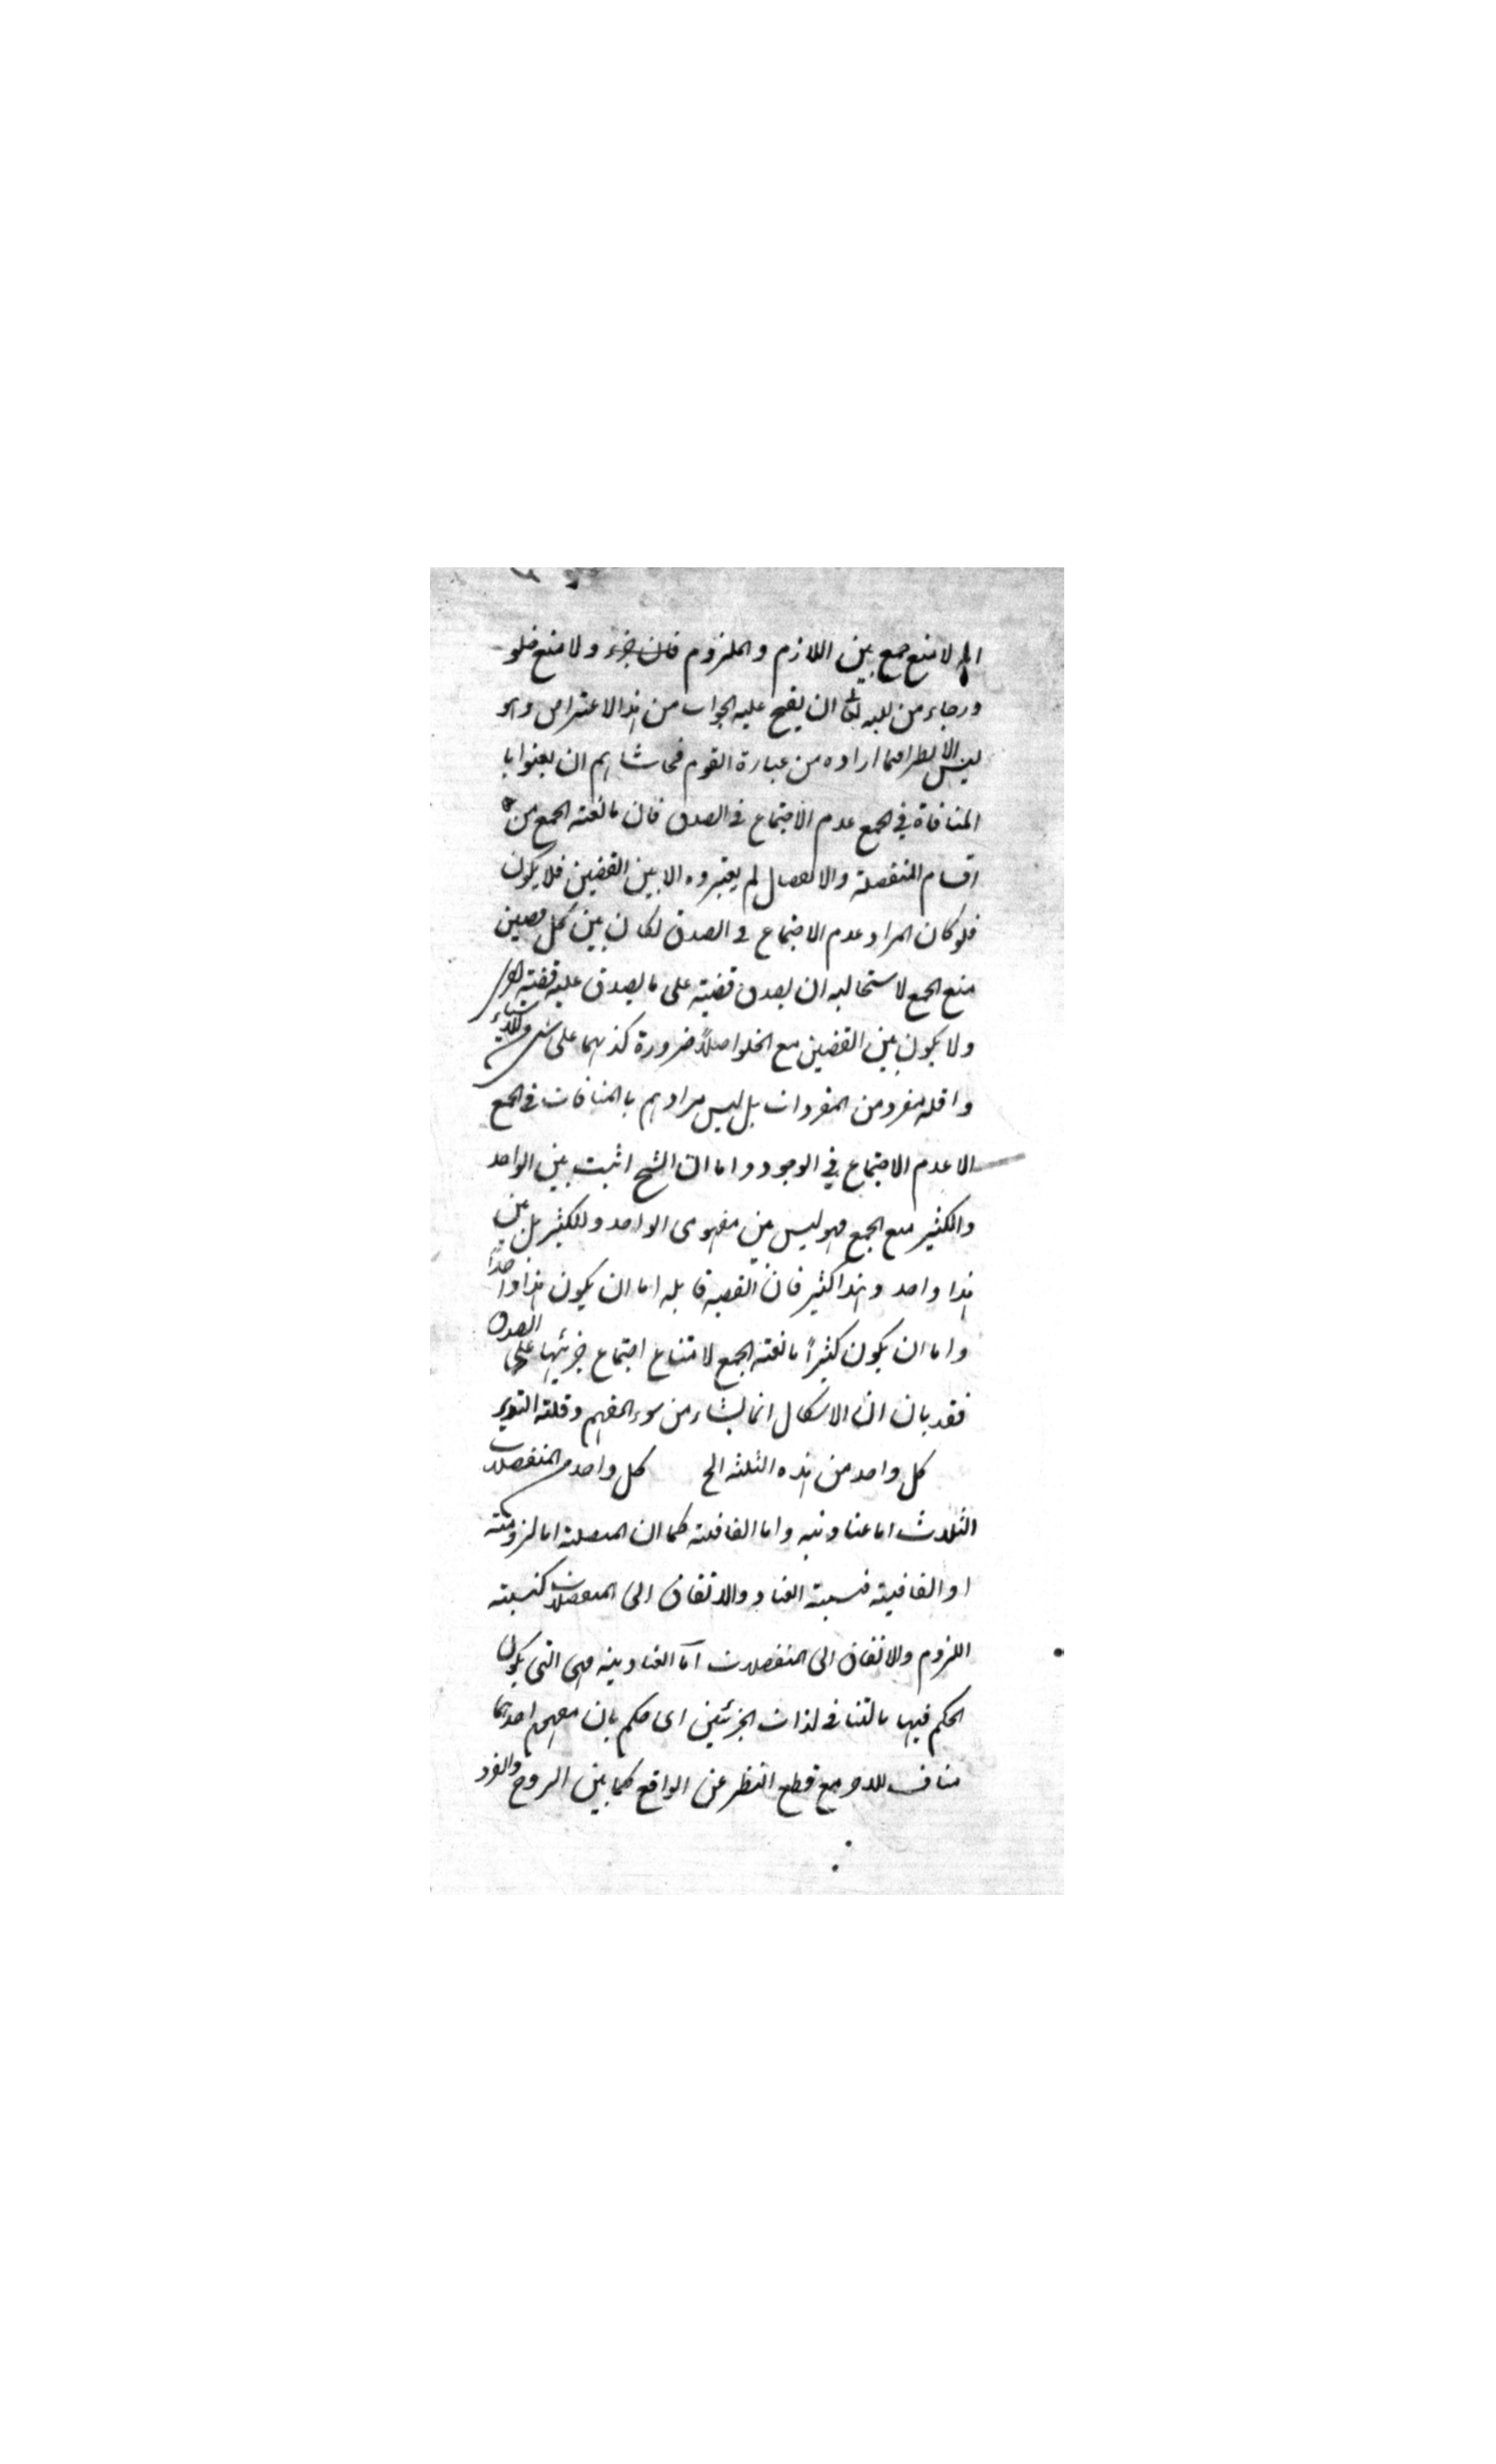 انه لا منع جمع بين اللازم والملزوم فان جزء ولا منع خلو
ورجاء من الله تعالى ان يفتح عليه الجواب من هذا الاعتراض وهو
ليس الا نظرا فيما اراده من عبارة القوم فحاشاهم ان يعنوا با
المنافاة في الجمع عدم الاجتماع في الصدق فان مانعة الجمع من
اقسام المنفصلة والانفصال لم يعتبروه الا بين القضيتين فلا يكون
فلو كان المراد عدم الاجتماع في الصدق لكان بين كل قضيتين
منع الجمع لاستحالة ان يصدق قضية على ما يصدق عليه قضية اخرى
ولا يكون بين القضيتين منع الخلو اصلاً ضرورة كذبهما على شيء من الاشياء
واقله مفرد من المفردات بل ليس مرادهم بالمنافات في الجمع
الا عدم الاجتماع في الوجود واما ان الشيخ اثبت بين الواحد
والكثير منع الجمع فهو ليس بين مفهومي الواحد والكثير بل بين
هذا واحد وهذا كثير فان القضية قابله اما ان يكون هذا واحداً
واما ان يكون كثيراً مانعة الجمع لامتناع اجتماع جزئيها على الصدق
فقد بان ان الاشكال انما ينشاء من سوء الفهم وقلة التدبر
كل واحد من هذه الثلثة الخ كل واحد من المنفصلات
الثلاث اما عنادية واما اتفاقية كما ان المتصلة اما لزومية
او اتفاقية فنسبة العناد والاتفاق الى المنفصلات كنسبة
اللزوم والاتفاق الى المتصلات اما العنادية فهي التي يكون
الحكم فيها بالتنافي لذات الجزئين اى حكم بان مفهوم احدهما
مناف للاخر مع قطع النظر عن الواقع كما بين الزوج والفرد